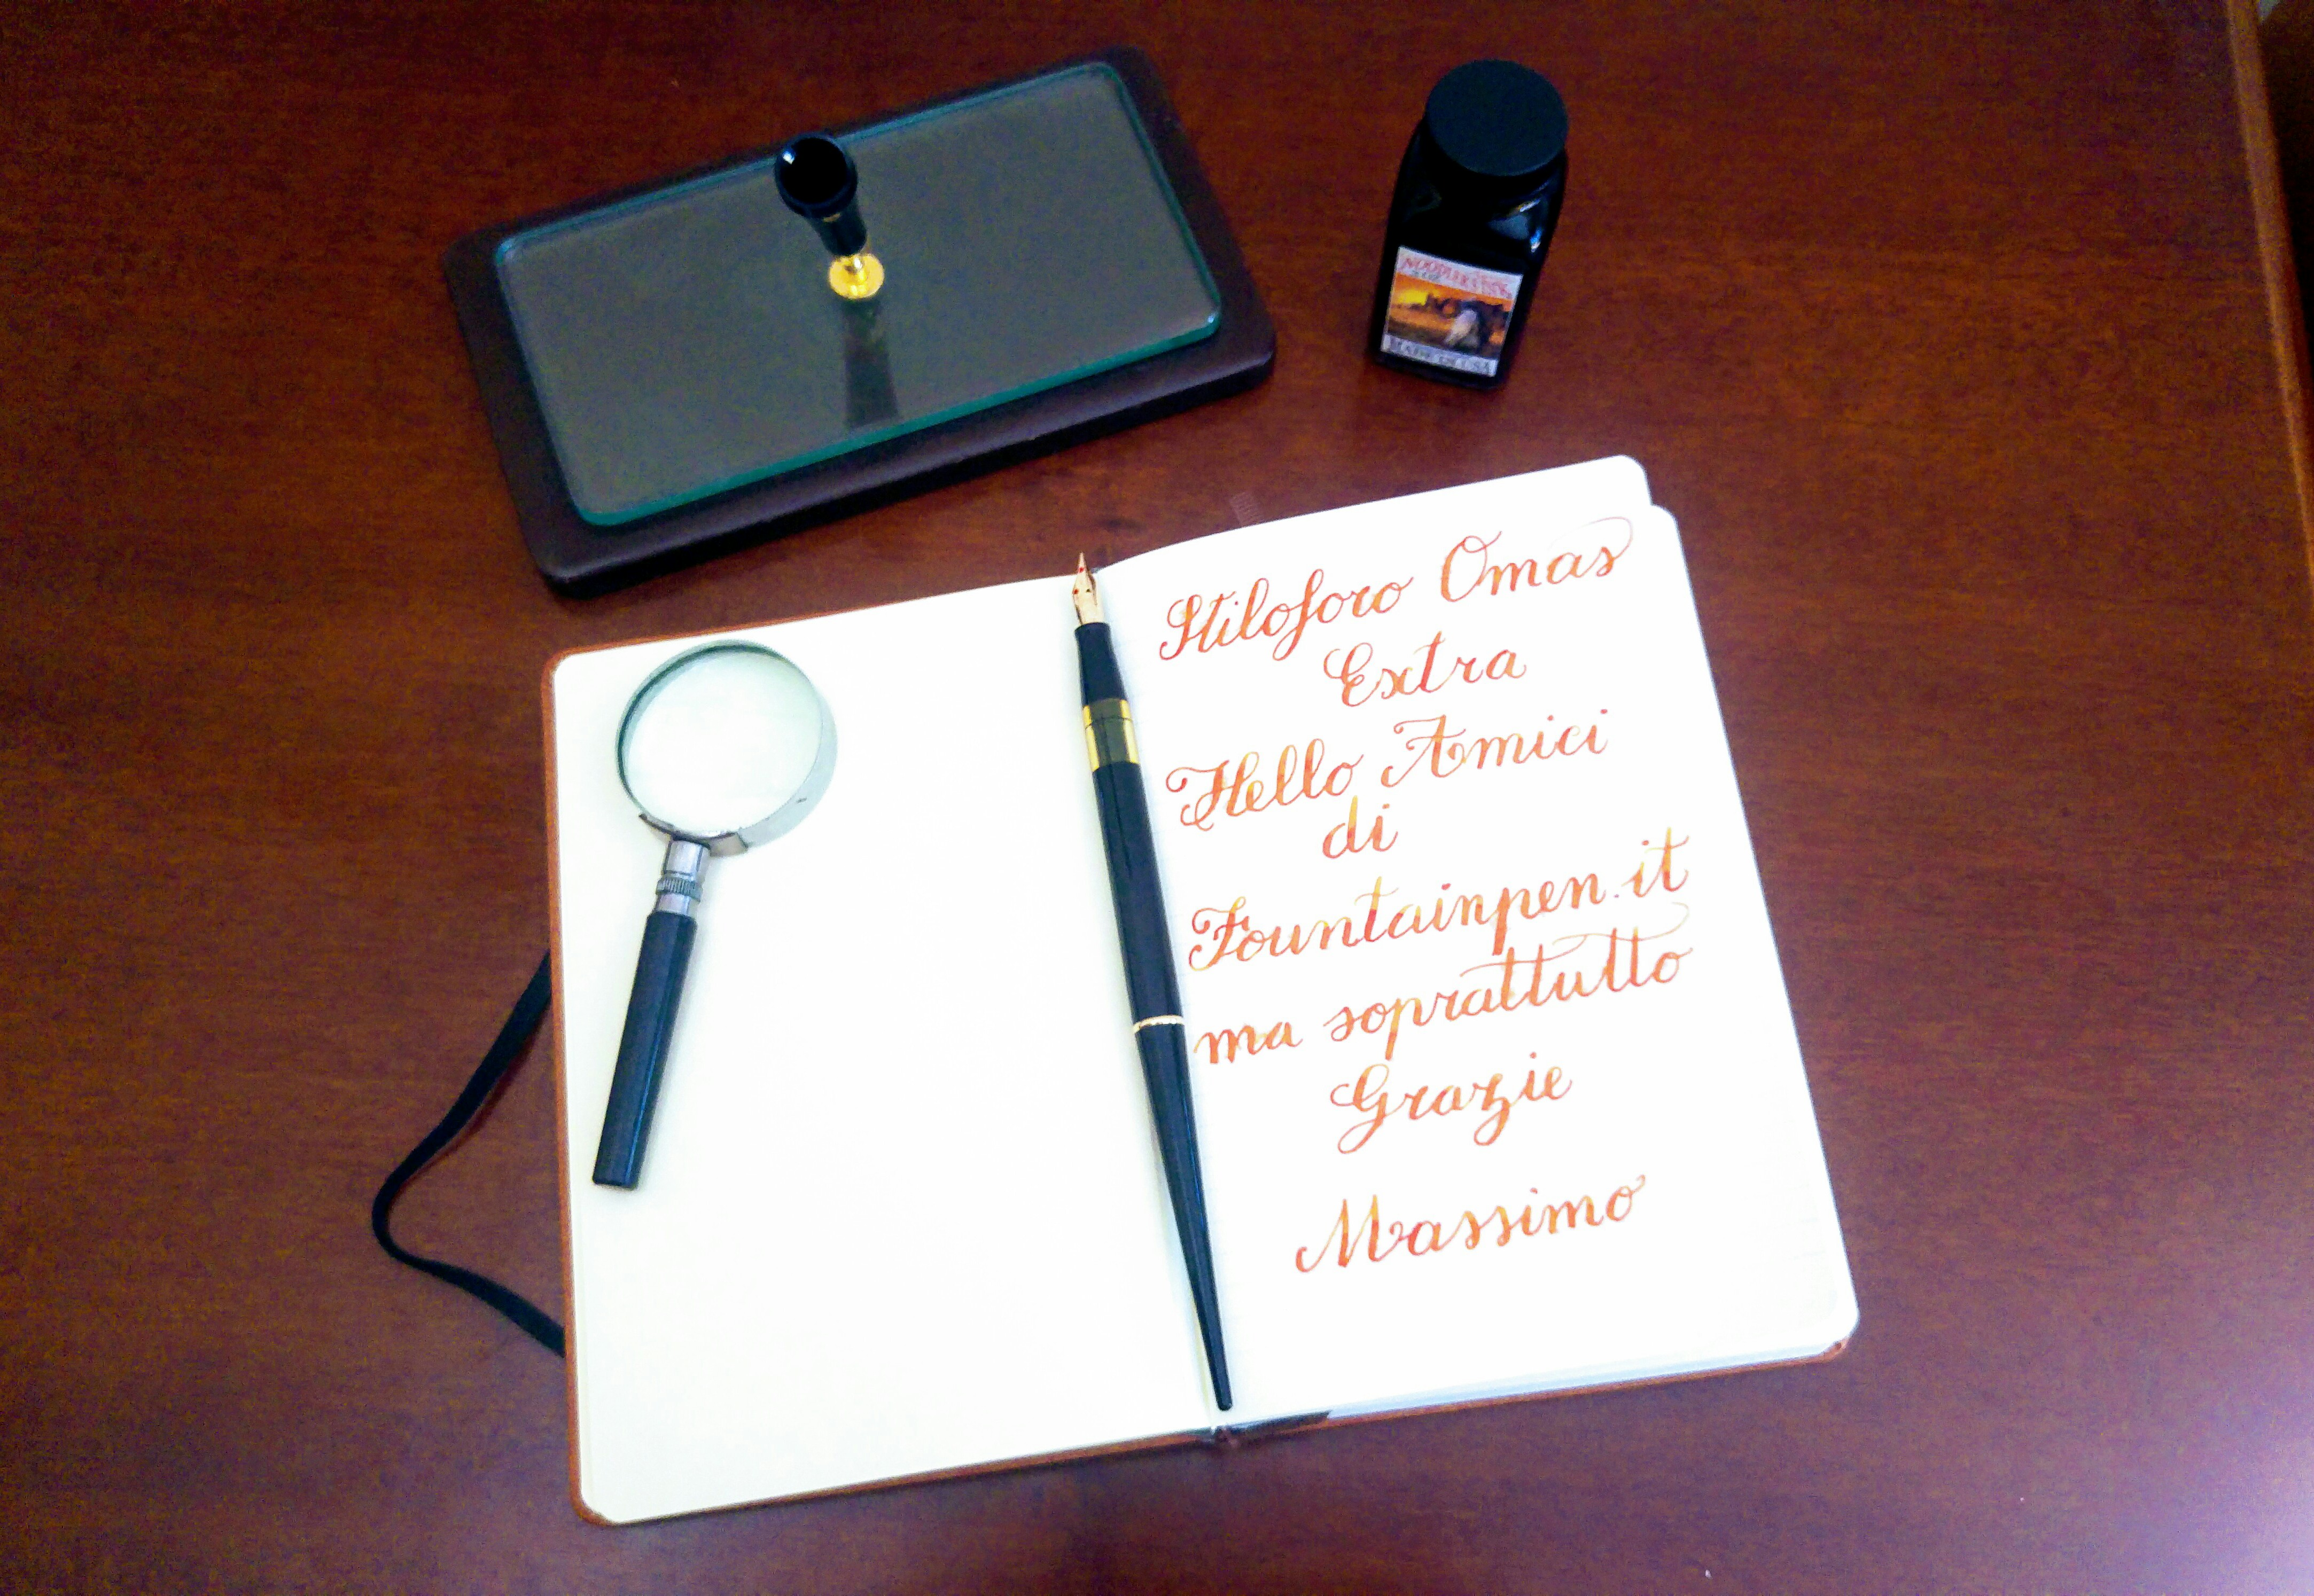 NOODLER'S
MADE IN USA
Stiloforo Omas
Extra
Hello Amici
di
Fountainpen.it
ma soprattutto
Grazie
Massimo